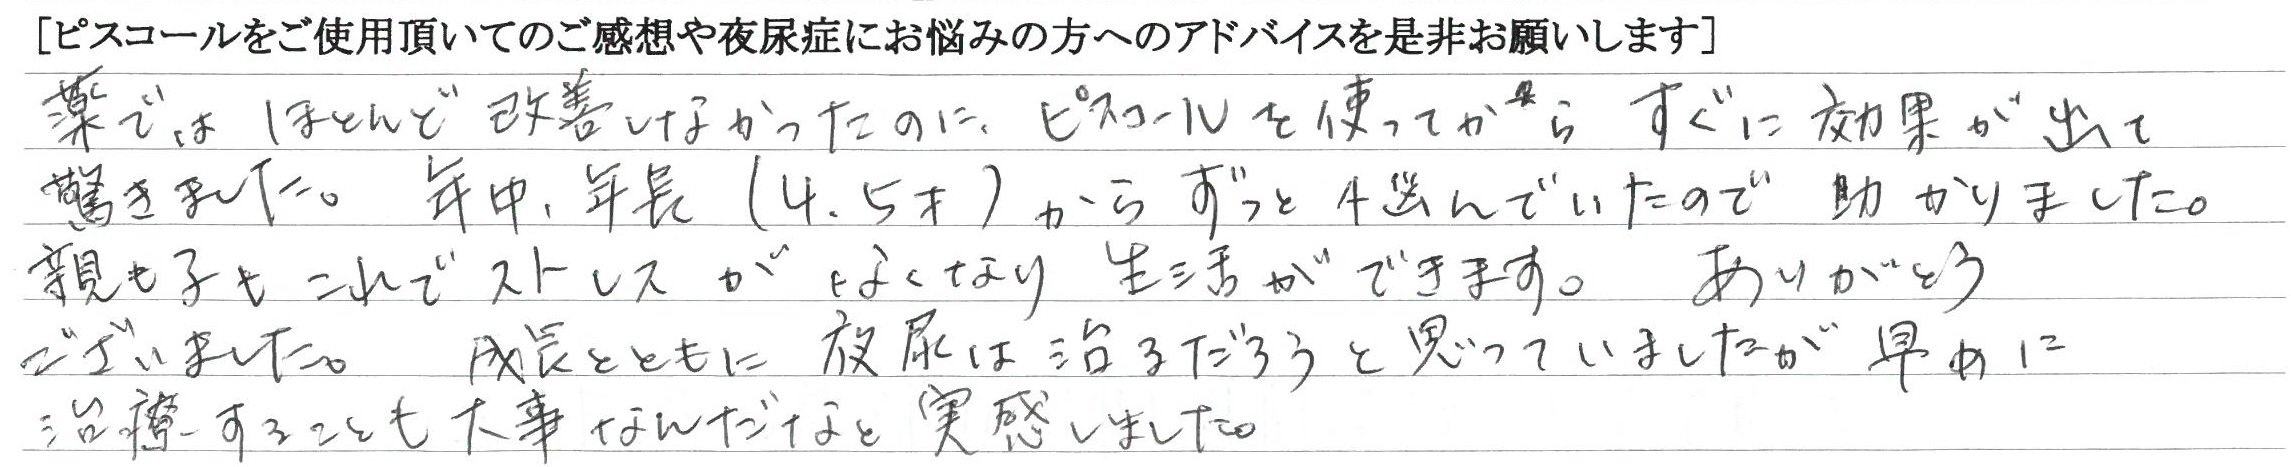 [ピスコールをご使用頂いてのご感想や夜尿症にお悩みの方へのアドバイスを是非お願いします]
薬では ほとんど 改善しなかったのに、ピスコールを使ってから すぐに効果が出て
驚きました。 年中、年長(4.5才)からずっと悩んでいたので 助かりました。
親も子も これで ストレスが なくなり 生活ができます。 ありがとう
ございました。 成長とともに 夜尿は治るだろうと思っていましたが 早めに
治療することも大事なんだなと 実感しました。